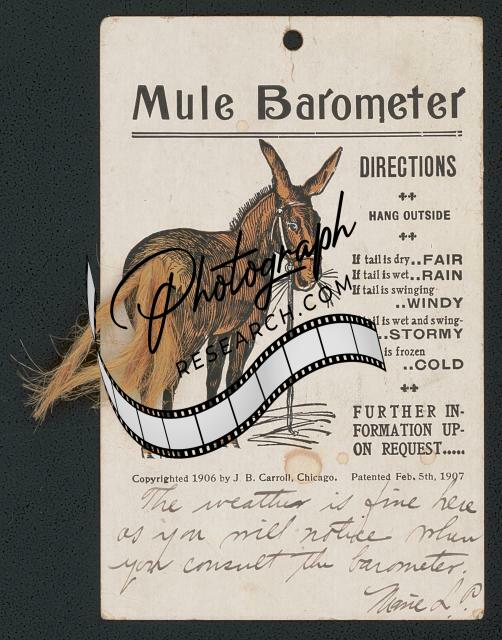 Mule Barometer
DIRECTIONS
HANG OUTSIDE
If tail is dry..FAIR
If tail is wet..RAIN
If tail is swinging
..WINDY
tail is wet and swing-
..STORMY
is frozen
..COLD
FURTHER IN-
FORMATION UP-
ON REQUEST.....
Photograph
RESEARCH.COM
Copyrighted 1906 by J. B. Carroll, Chicago. Patented Feb. 5th, 1907
The weather is fine here
as you will notice when
you consult the barometer.
Marie L. P.